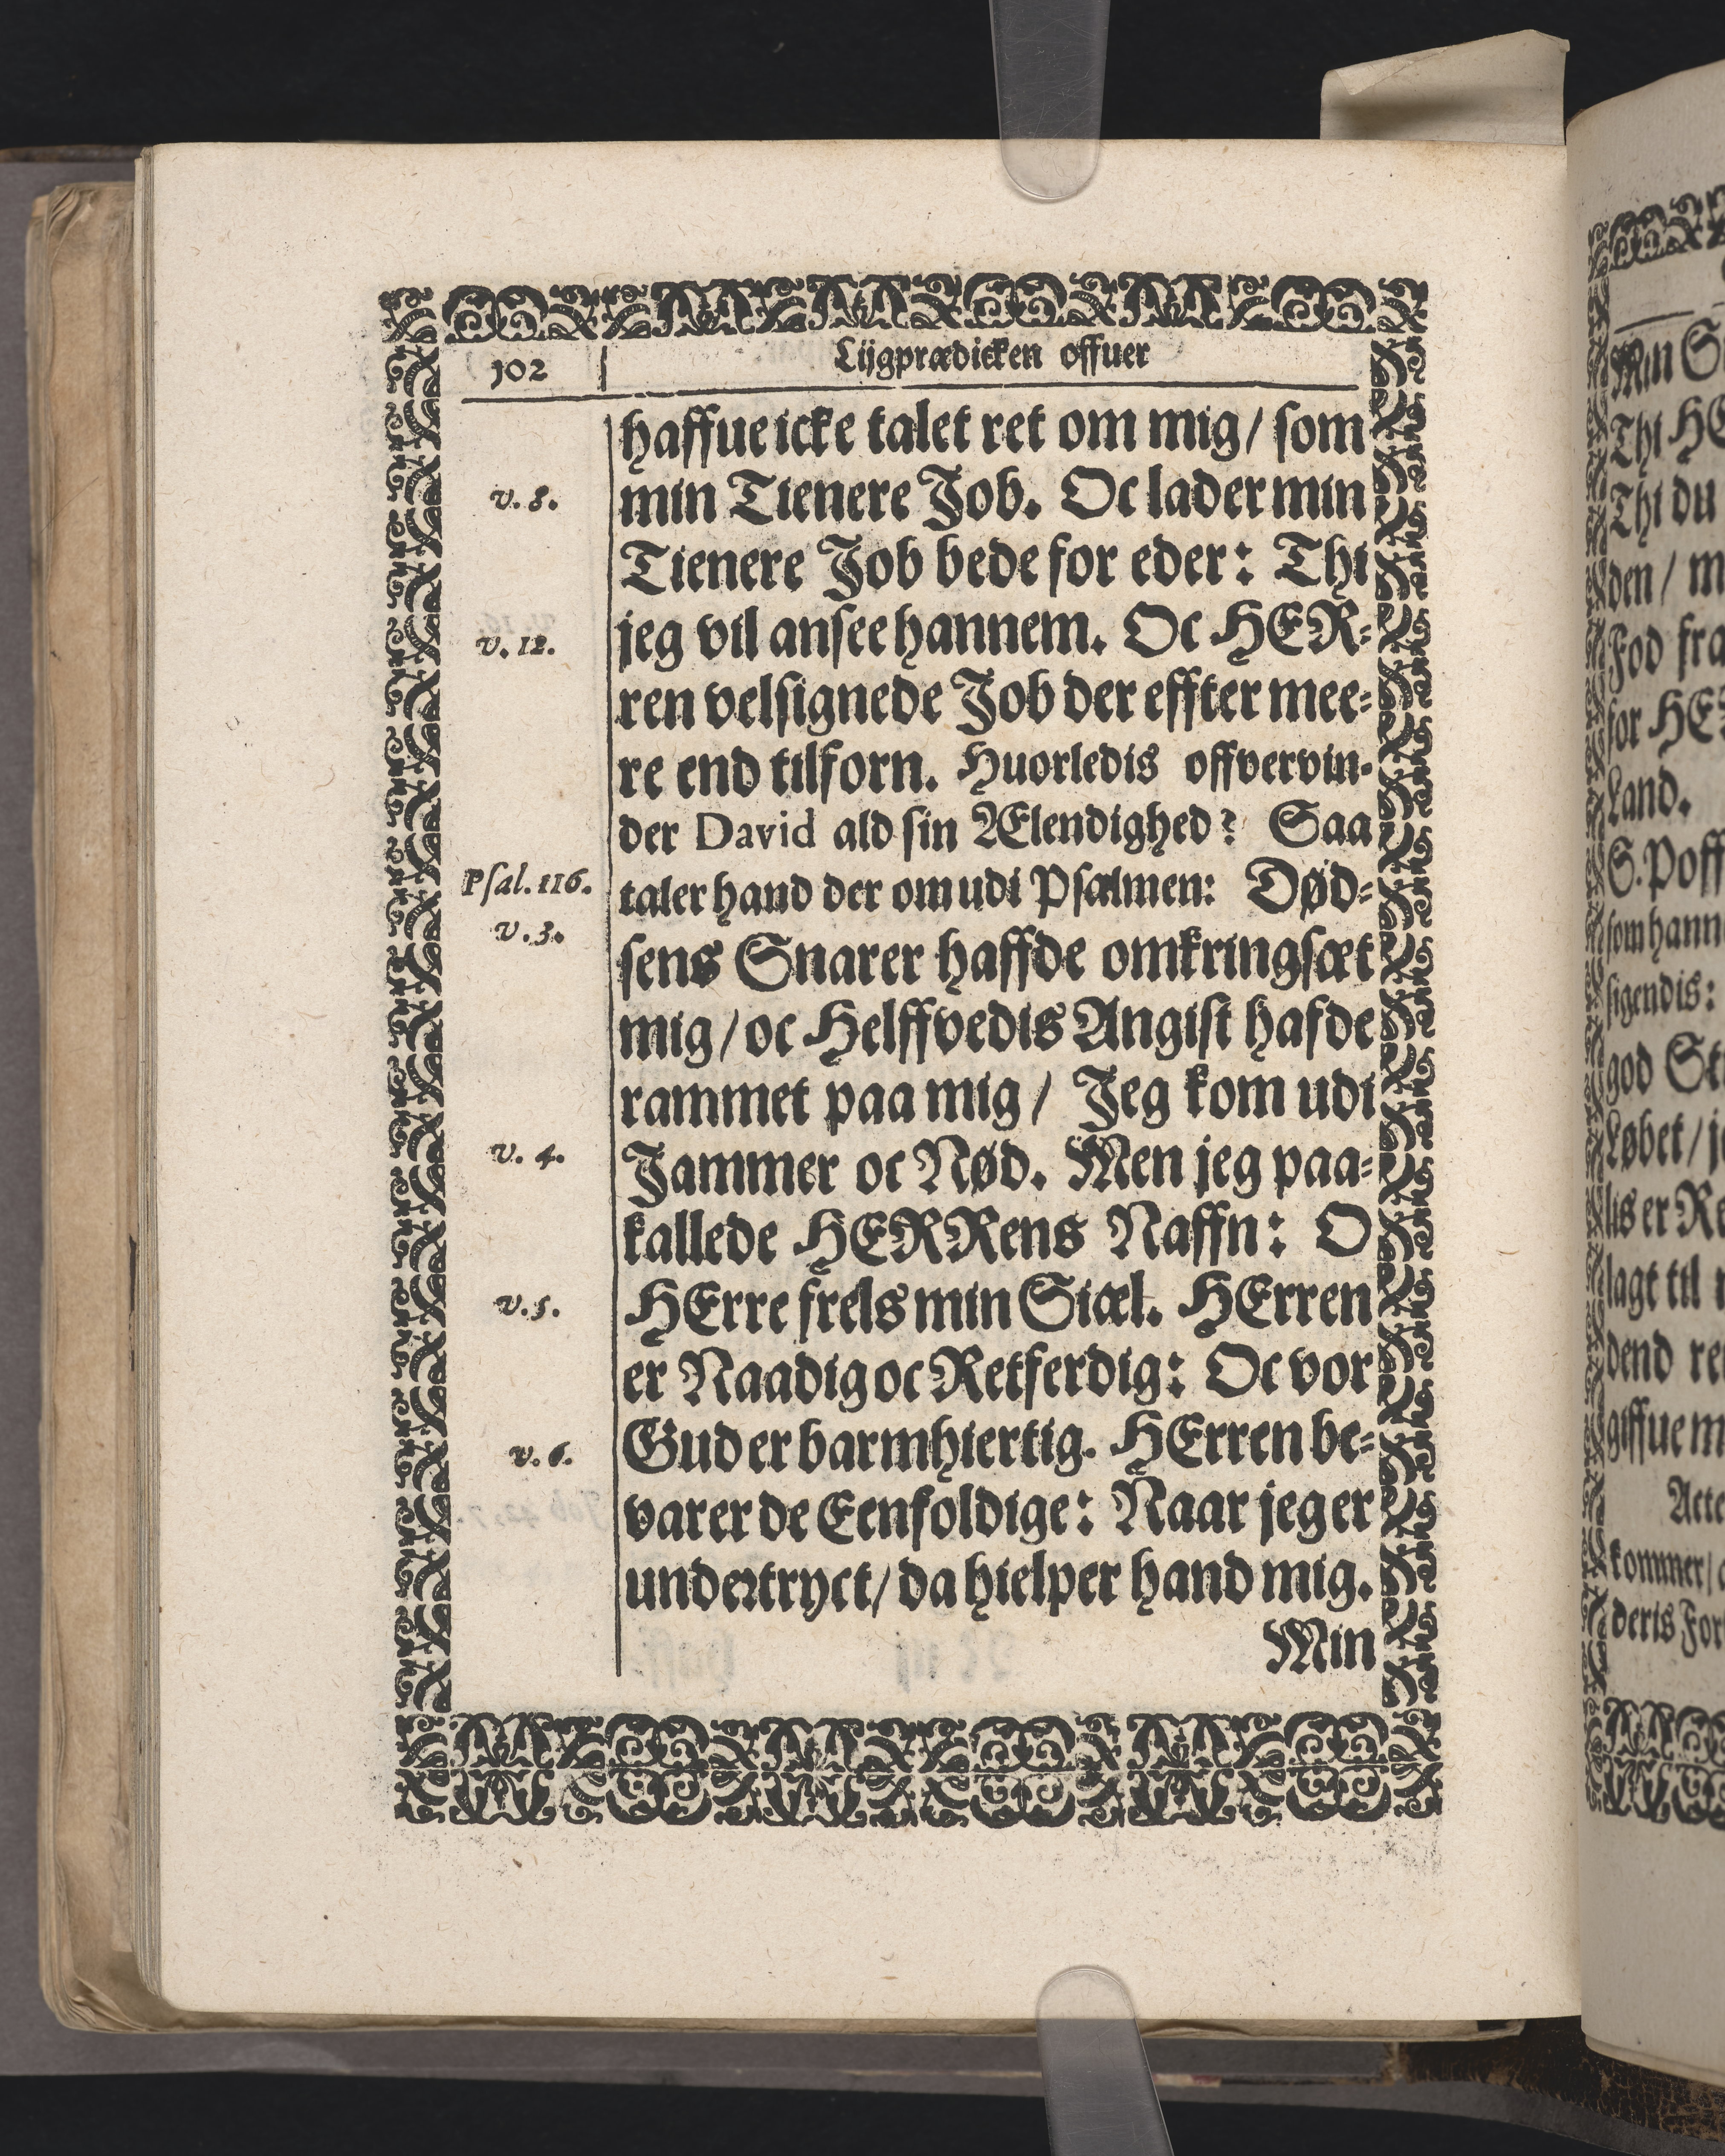 102
Liigprædicken offuer
haffue icke talet ret om mig/ som
v. 8.
min Tienere Job. Oc lader min
Tienere Job bede for eder: Thi
v. 12.
jeg vil ansee hannem. Oc HER-
ren velsignede Job der effter mee-
re end tilforn. Huorledis offvervin-
der David ald sin Ælendighed? Saa
Psal. 116.
taler hand der om udi Psalmen: Død-
v. 3.
sens Snarer haffde omkringsæt
mig/ oc Helffvedis Angist hafde
rammet paa mig/ Jeg kom udi
v. 4.
Jammer oc Nød. Men jeg paa-
kallede HERRens Naffn: O
v. 5.
HErre frels min Siæl. HErren
er Naadig oc Retferdig: Oc vor
v. 6.
Gud er barmhiertig. HErren be-
varer de Eenfoldige: Naar jeg er
undertryct/ da hielper hand mig.
Min
Min
Thi
Thi du
den/
Fod fra
for
Land.
S.
som
sigendis:
god
Løbet/
lis er
lagt til
dend
giffue
kommer/
deris